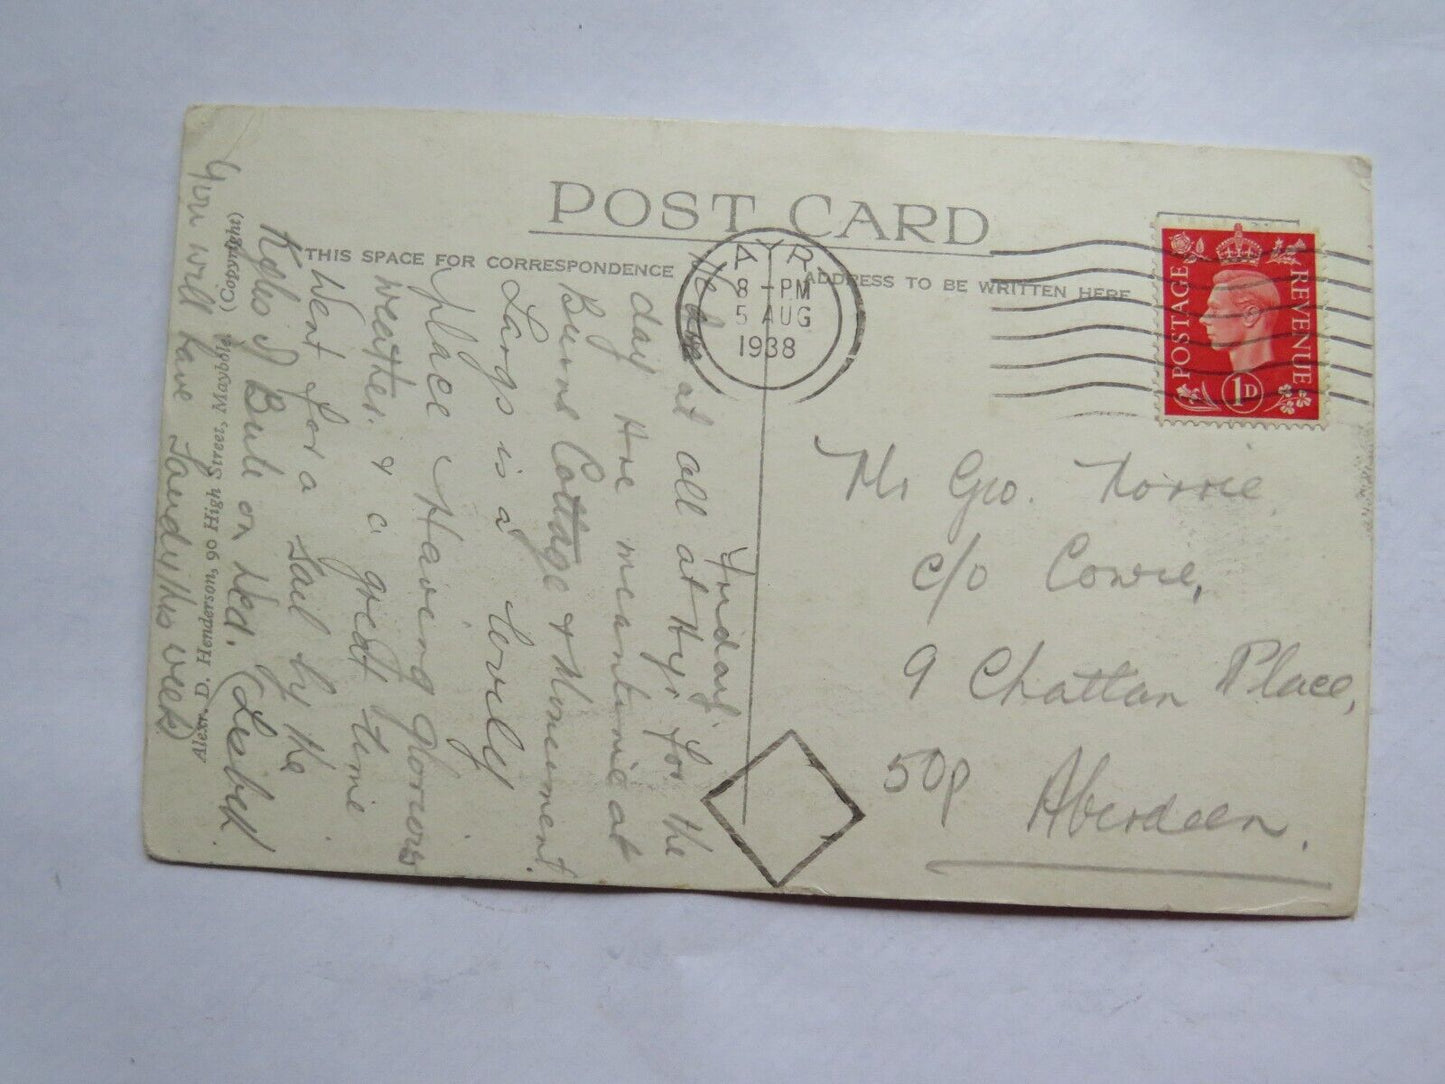 POST CARD
THIS SPACE FOR CORRESPONDENCE
ADDRESS TO BE WRITTEN HERE
AYR
8 - PM
5 AUG
1938
POSTAGE
REVENUE
1D
Friday.
We are at all at Ayr for the
day. Are meantime at
Burns Cottage & Monument.
Largs is a lovely
place. Having glorious
weather. & a great time
Went for a sail by the
Kyles of Bute on Wed. Isabell
You will have Sandy this week
Alexr. D. Henderson, 90 High Street, Maybole (Copyright)
Mr Geo. Norrie
c/o Cowie,
9 Chattan Place,
Aberdeen.
50p